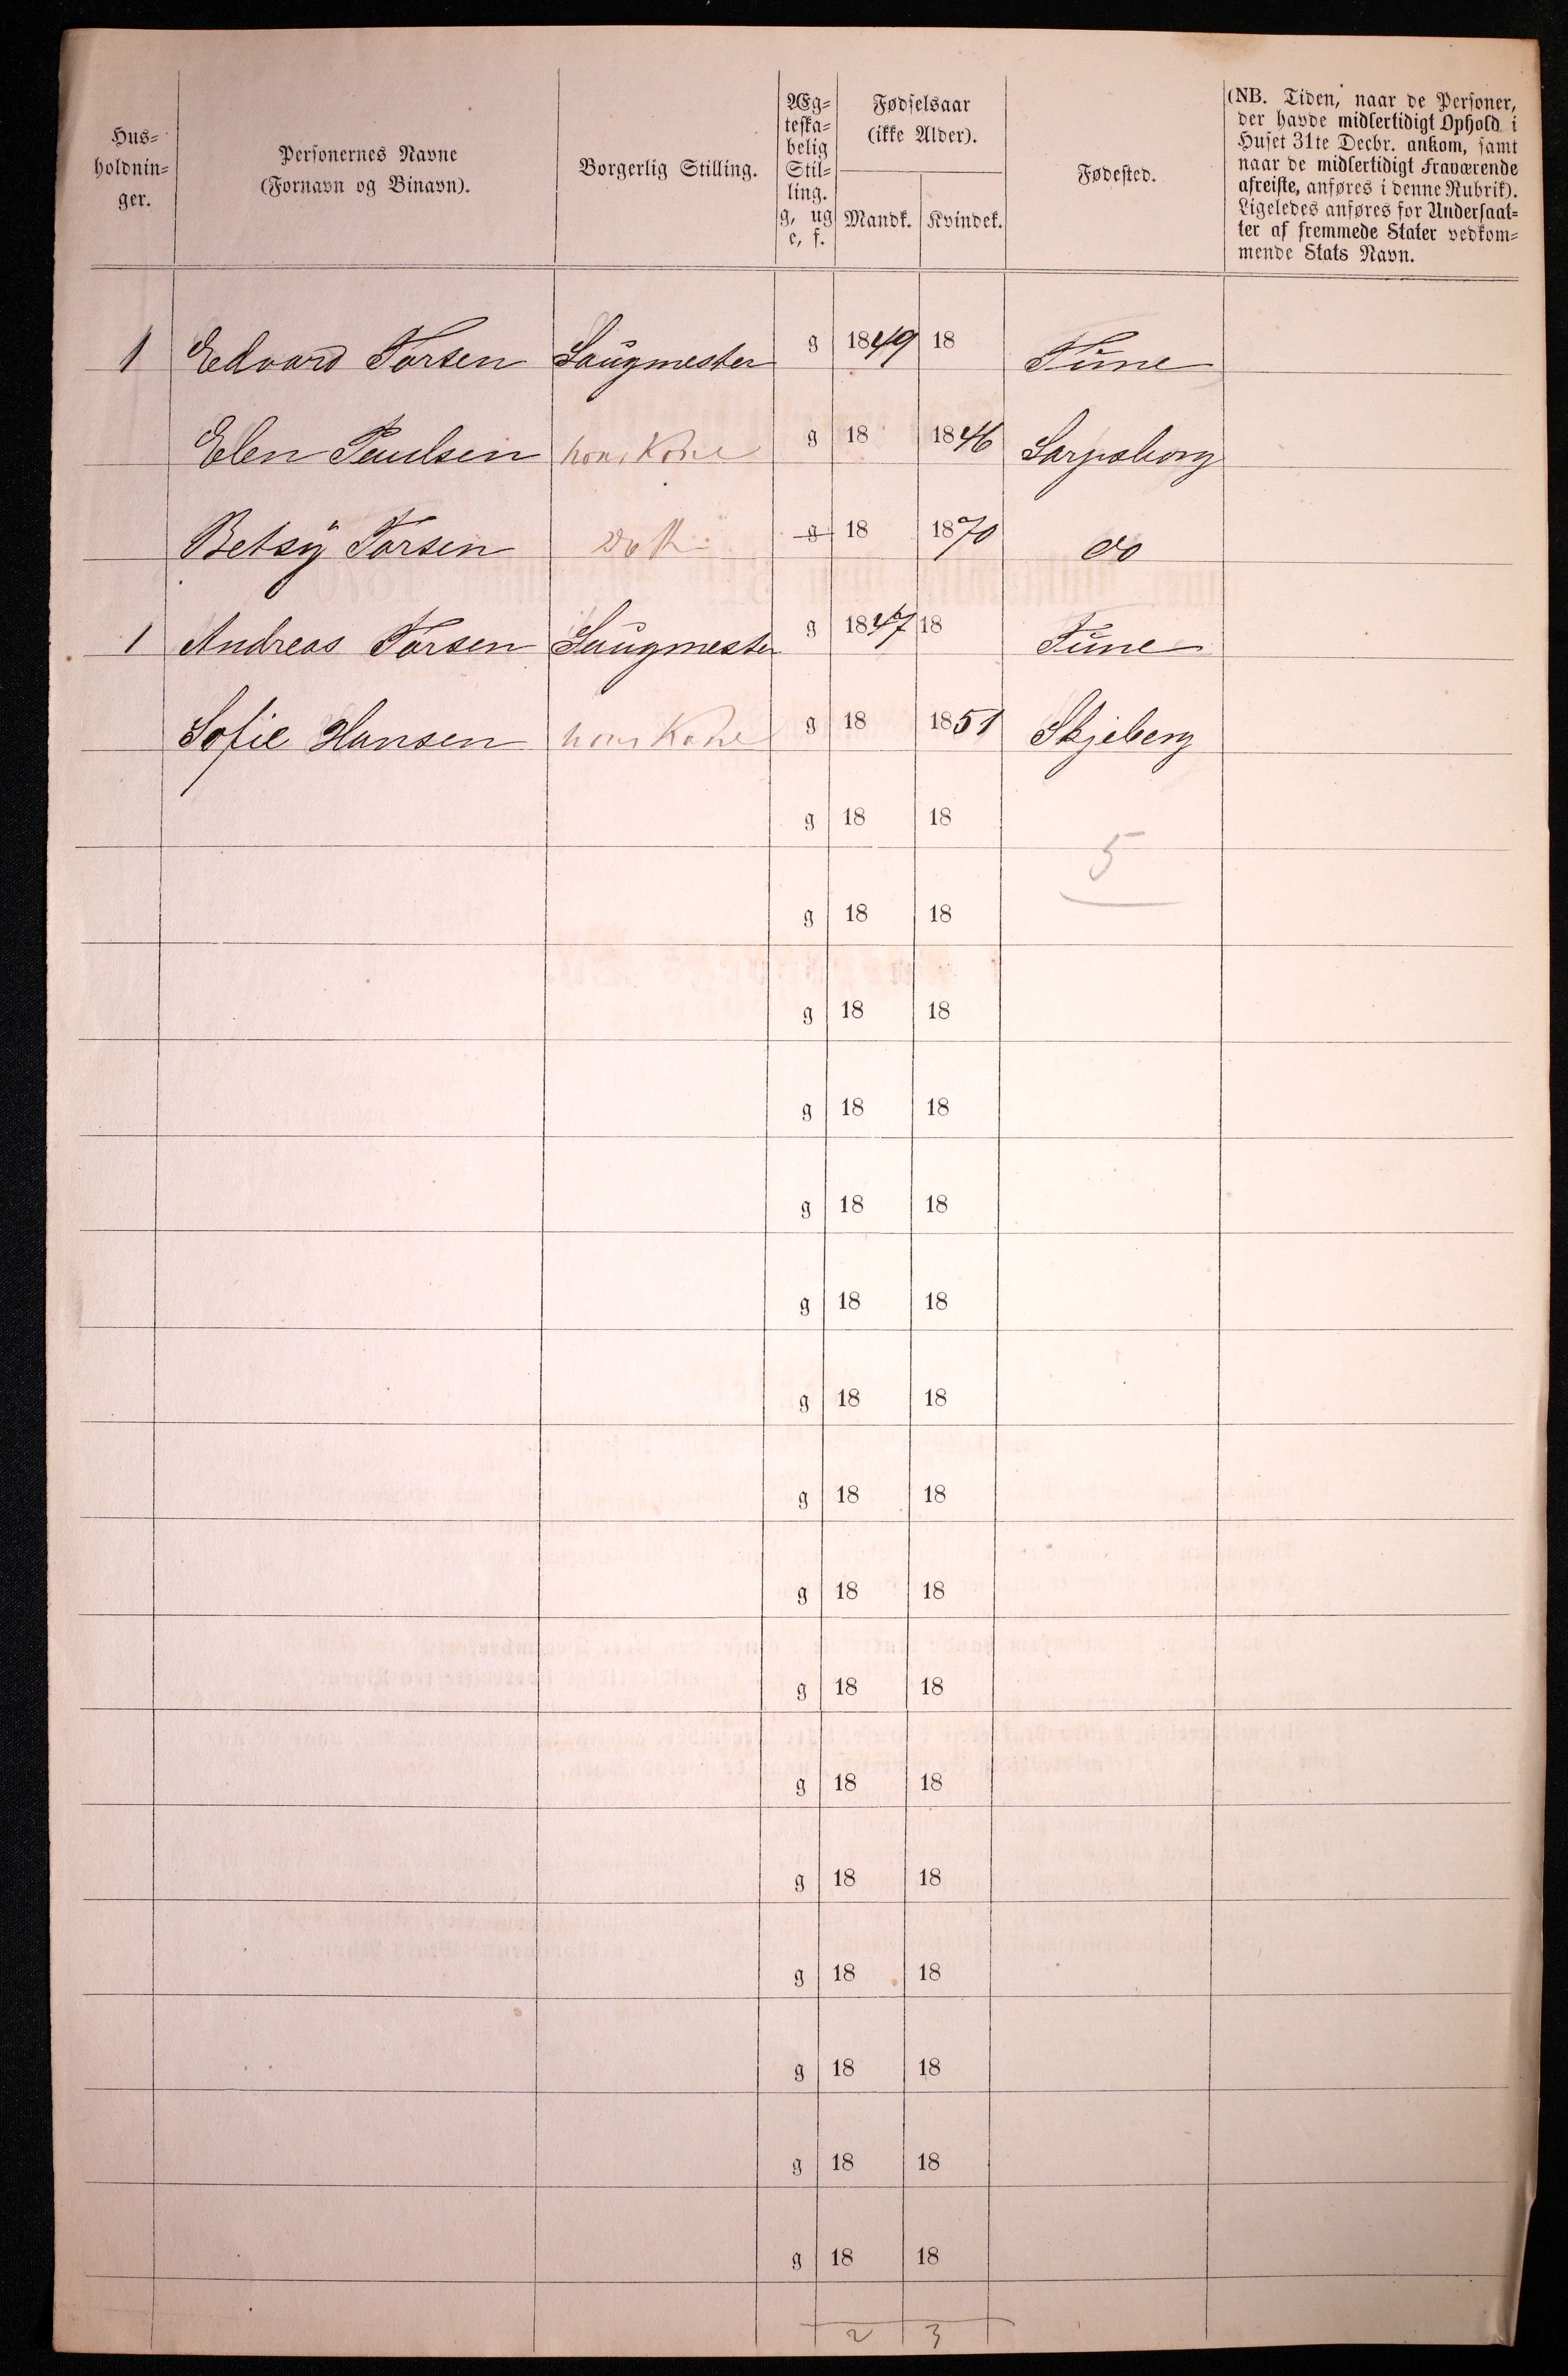 Hus=
holdnin=
ger.
Personernes Navne
(Fornavn og Binavn).
Borgerlig Stilling.
Æg=
teska=
belig
Stil=
ling.
g, ug
e, f.
Fødselsaar
(ikke Alder).
Mandk. Kvindek.
Fødested.
(NB. Tiden, naar de Personer,
der havde midlertidigt Ophold i
Huset 31te Decbr. ankom, samt
naar de midlertidigt Fraværende
afreiste, anføres i denne Rubrik).
Ligeledes anføres for Undersaat=
ter af fremmede Stater vedkom=
mende Stats Navn.
1 Edvard Torsen Saugmester g 1849 18 Tune
Elen Paulsen hans Kone g 18 1846 Sarpsborg
Betsÿ Torsen g 18 1870 do
1 Andreas Torsen Saugmester g 1847 18 Tune
Sofie Hansen hans Kone g 18 1851 Skjeberg
g 18 18
5
g 18 18
g 18 18
g 18 18
g 18 18
g 18 18
g 18 18
g 18 18
g 18 18
g 18 18
g 18 18
g 18 18
g 18 18
g 18 18
g 18 18
g 18 18
2 3